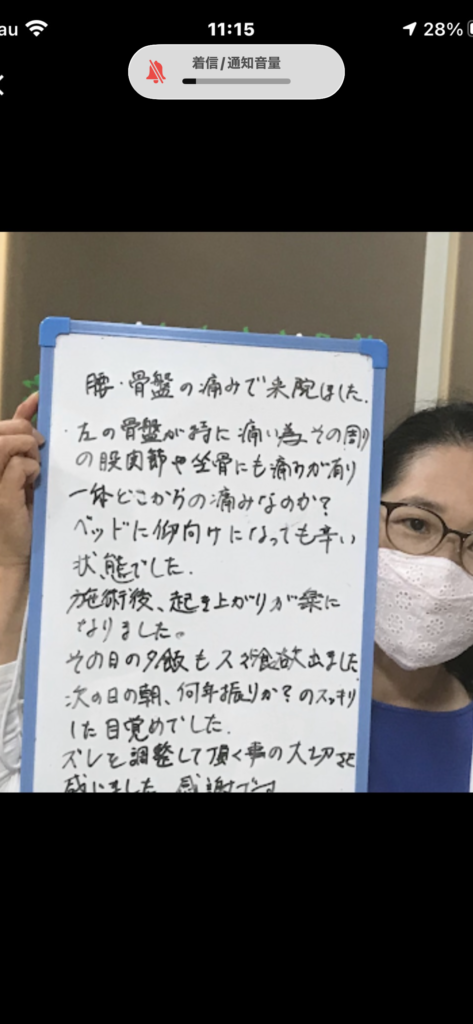 au
11:15
28%
着信/通知音量
腰・骨盤の痛みで来院しました.
・左の骨盤が特に痛い為その周り
の股関節や坐骨にも痛みが有り
一体どこからの痛みなのか?
ベッドに仰向けになっても辛い
状態でした.
施術後、起き上がりが楽に
なりました。
その日の夕飯も 食欲出ました
次の日の朝、何年振りか?のスッキリ
した目覚めでした.
ズレを調整して頂く事の大切を
感じました 感謝です